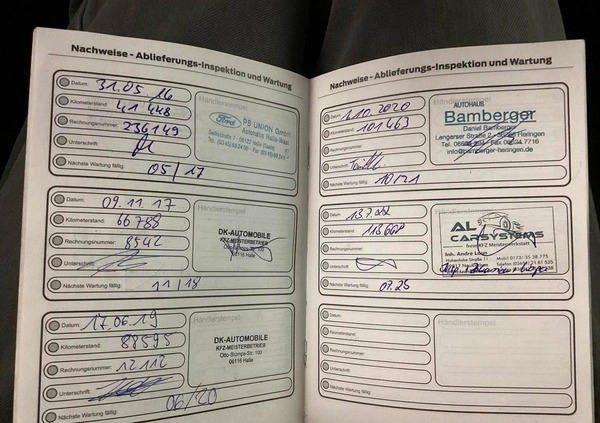 Nachweise - Ablieferungs-Inspektion und Wartung
Datum: 31.05.16
Kilometerstand: 41 448
Rechnungsnummer: 236149
Unterschrift:
Nächste Wartung fällig: 05/17
Händlerstempel
Ford PB UNION GmbH
Autohaus Halle-West
Datum: 09.11.17
Kilometerstand: 66788
Rechnungsnummer: 8542
Unterschrift:
Nächste Wartung fällig: 11/18
Händlerstempel
DK-AUTOMOBILE
KFZ-MEISTERBETRIEB
06116 Halle
Datum: 17.06.19
Kilometerstand: 88595
Rechnungsnummer: 12112
Unterschrift:
Nächste Wartung fällig: 06/20
Händlerstempel
DK-AUTOMOBILE
KFZ-MEISTERBETRIEB
Otto-Stomps-Str. 100
06116 Halle
Nachweise - Ablieferungs-Inspektion und Wartung
Datum: 10.2020
Kilometerstand: 101463
Rechnungsnummer:
Unterschrift:
Nächste Wartung fällig: 10/21
Händlerstempel
AUTOHAUS
Bamberger
Daniel Bamberger
Lengerser Straße 2 Heringen
Fax 7716
info@bamberger-heringen.de
Datum:
Kilometerstand:
Rechnungsnummer:
Unterschrift:
Nächste Wartung fällig: 07.23
Händlerstempel
AL
CARSYSTEMS
freie KFZ Meisterwerkstatt
Inh. Andre
Datum:
Kilometerstand:
Rechnungsnummer:
Unterschrift:
Nächste Wartung fällig:
Händlerstempel